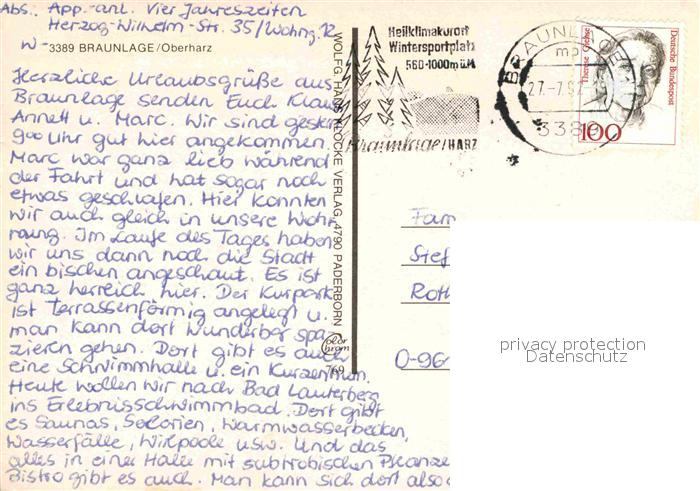 Abs.: App.-anl. Vier Jahreszeiten
Herzog-Wilhelm-Str. 35/Wohng. 12
W-3389 BRAUNLAGE/Oberharz
Herzliche Urlaubsgrüße aus
Braunlage senden Euch Klaus
Annett u. Marc. Wir sind gestern
9⁰⁰ Uhr gut hier angekommen.
Marc war ganz lieb während
der Fahrt und hat sogar noch
etwas geschlafen. Hier konnten
wir auch gleich in unsere Wohn
nung. Im Laufe des Tages haben
wir uns dann noch die Stadt
ein bischen angeschaut. Es ist
ganz herrlich hier. Der Kurpark
ist Terrassenförmig angelegt u.
man kann dort wunderbar spa-
zieren gehen. Dort gibt es auch
eine Schwimmhalle u. ein Kurzentrum.
Heute wollen wir nach Bad Lauterberg
ins Erlebnisschwimmbad. Dort gibt
es Saunas, Solarien, Warmwasserbecken,
Wasserfälle, Wirlpoole usw. Und das
alles in einer Halle mit subtrobischen Pflanzen
Bistro gibt es auch. Man kann sich dort also
WOLFG. HANS KLOCKE VERLAG, 4790 PADERBORN
color
chrom
769
Heilklimakurort
Wintersportplatz
560-1000m ü.M.
Braunlage/HARZ
BRAUNLAGE
mp
27.-7.92
3389
Therese Giehse
Deutsche Bundespost
100
Fam
Stef
Roth
O-96
privacy protection
Datenschutz